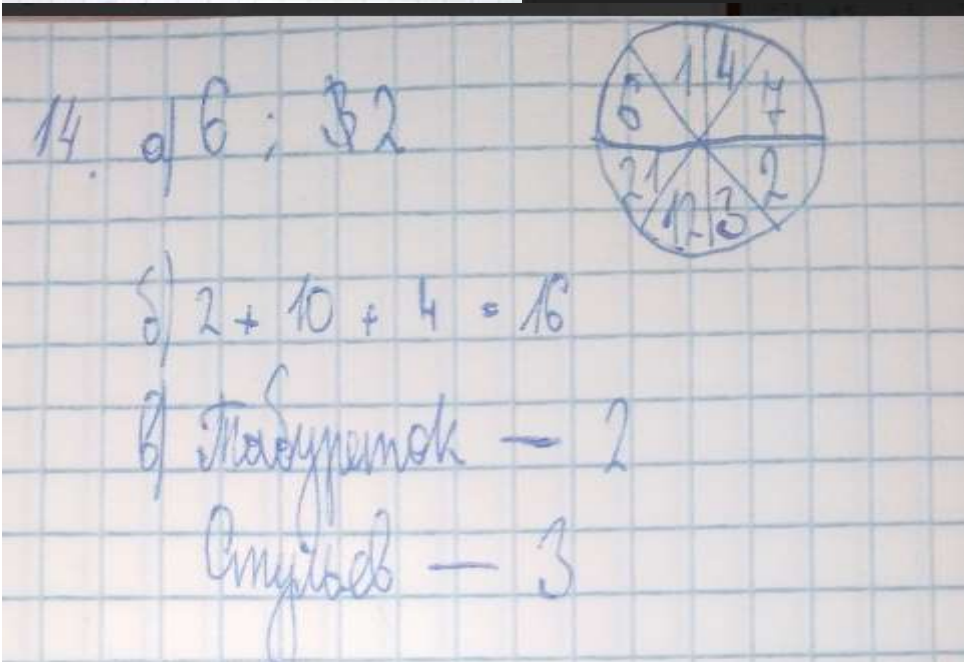 14. а) 6 ; 2
1 4
6 7
21 2
12 3
б) 2 + 10 + 4 = 16
в) Табуреток — 2
Стульев — 3